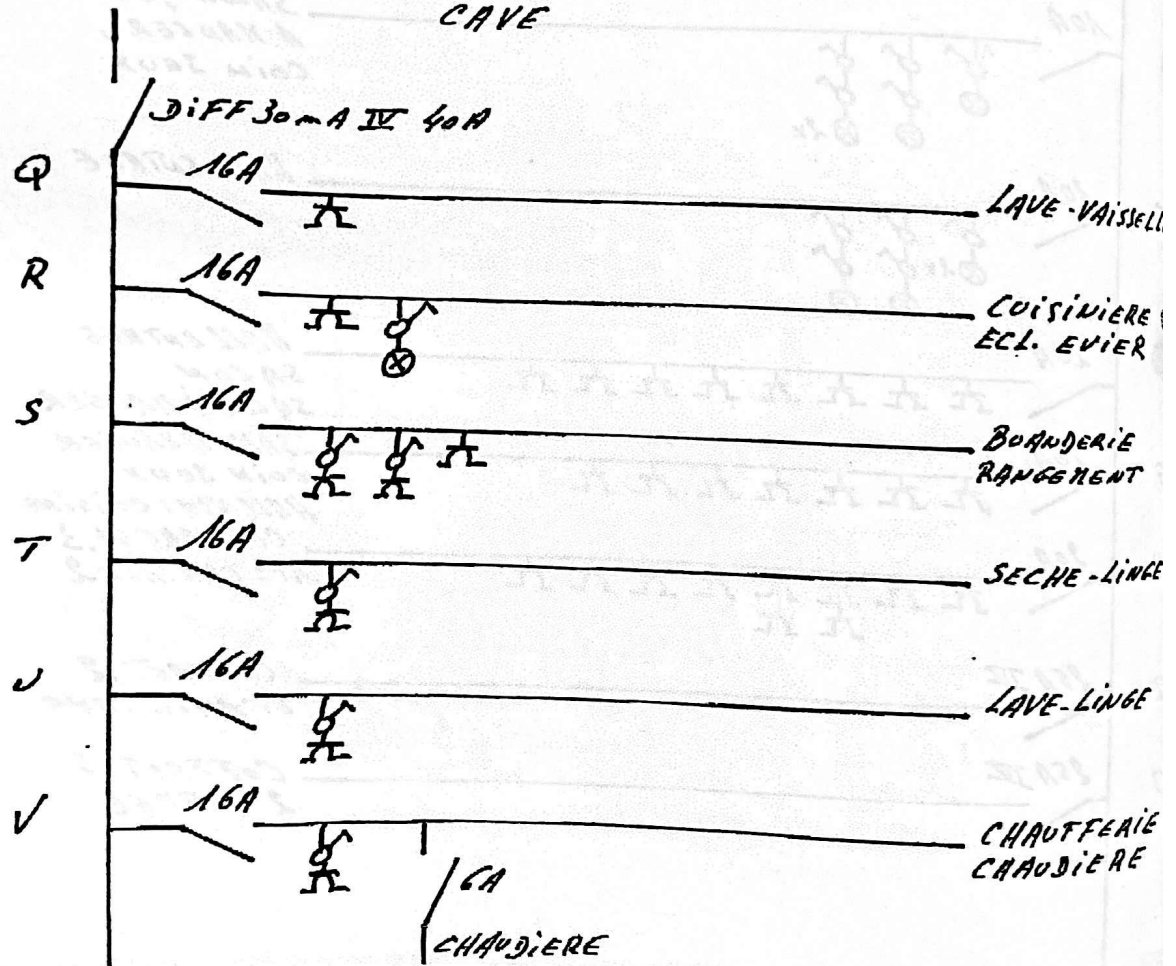 CAVE
DiFF 30mA IV 40A
Q 16A LAVE-VAISSELLE
R 16A CUISINIERE
ECL. EVIER
S 16A BUANDERIE
RANGEMENT
T 16A SECHE-LINGE
U 16A LAVE-LINGE
V 16A CHAUFFERIE
CHAUDIERE
6A
CHAUDIERE